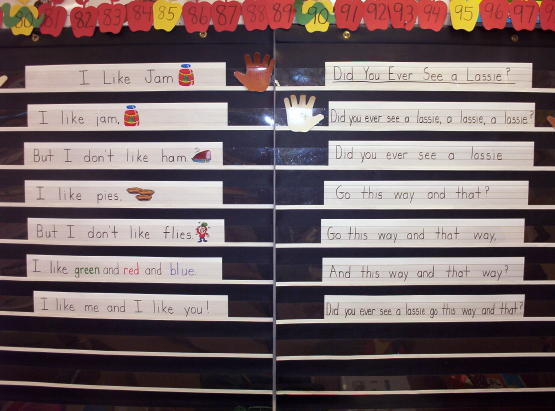 80 81 82 83 84 85 86 87 88 89 90 91 92 93 94 95 96 97
I Like Jam
I like jam.
But I don't like ham.
I like pies.
But I don't like flies.
I like green and red and blue.
I like me and I like you!
Did You Ever See a Lassie?
Did you ever see a lassie, a lassie, a lassie?
Did you ever see a lassie
Go this way and that?
Go this way and that way,
And this way and that way?
Did you ever see a lassie go this way and that?